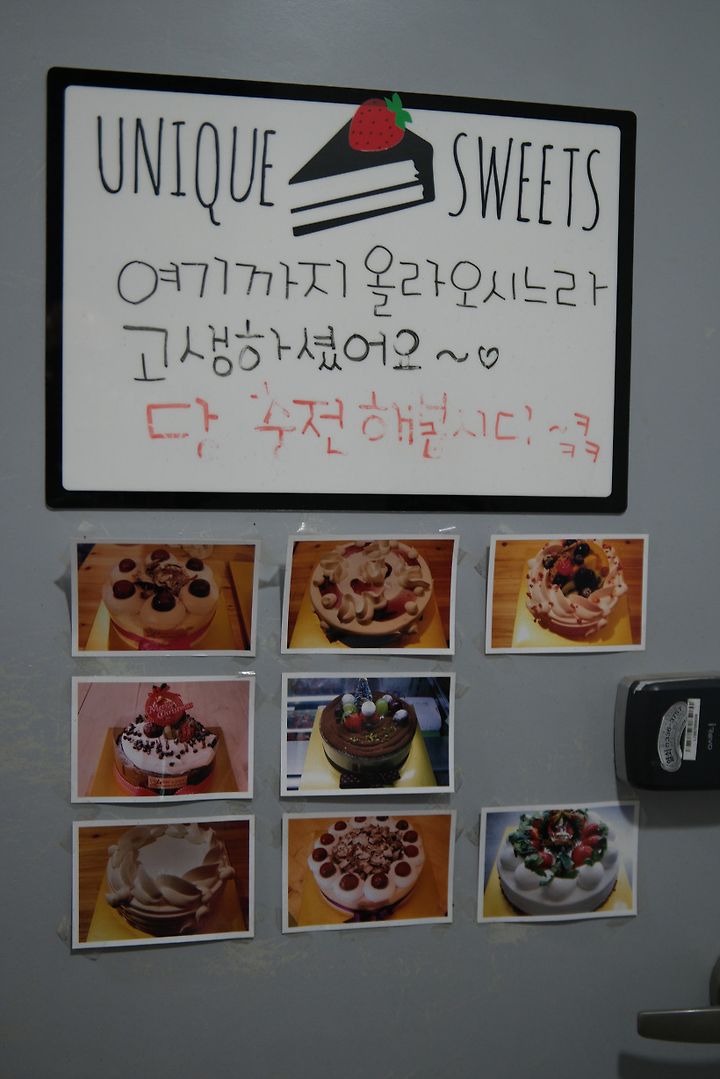 UNIQUE SWEETS
여기까지 올라오시느라
고생하셨어요~♡
당 충전해봅시다! ~ㅋㅋㅋ